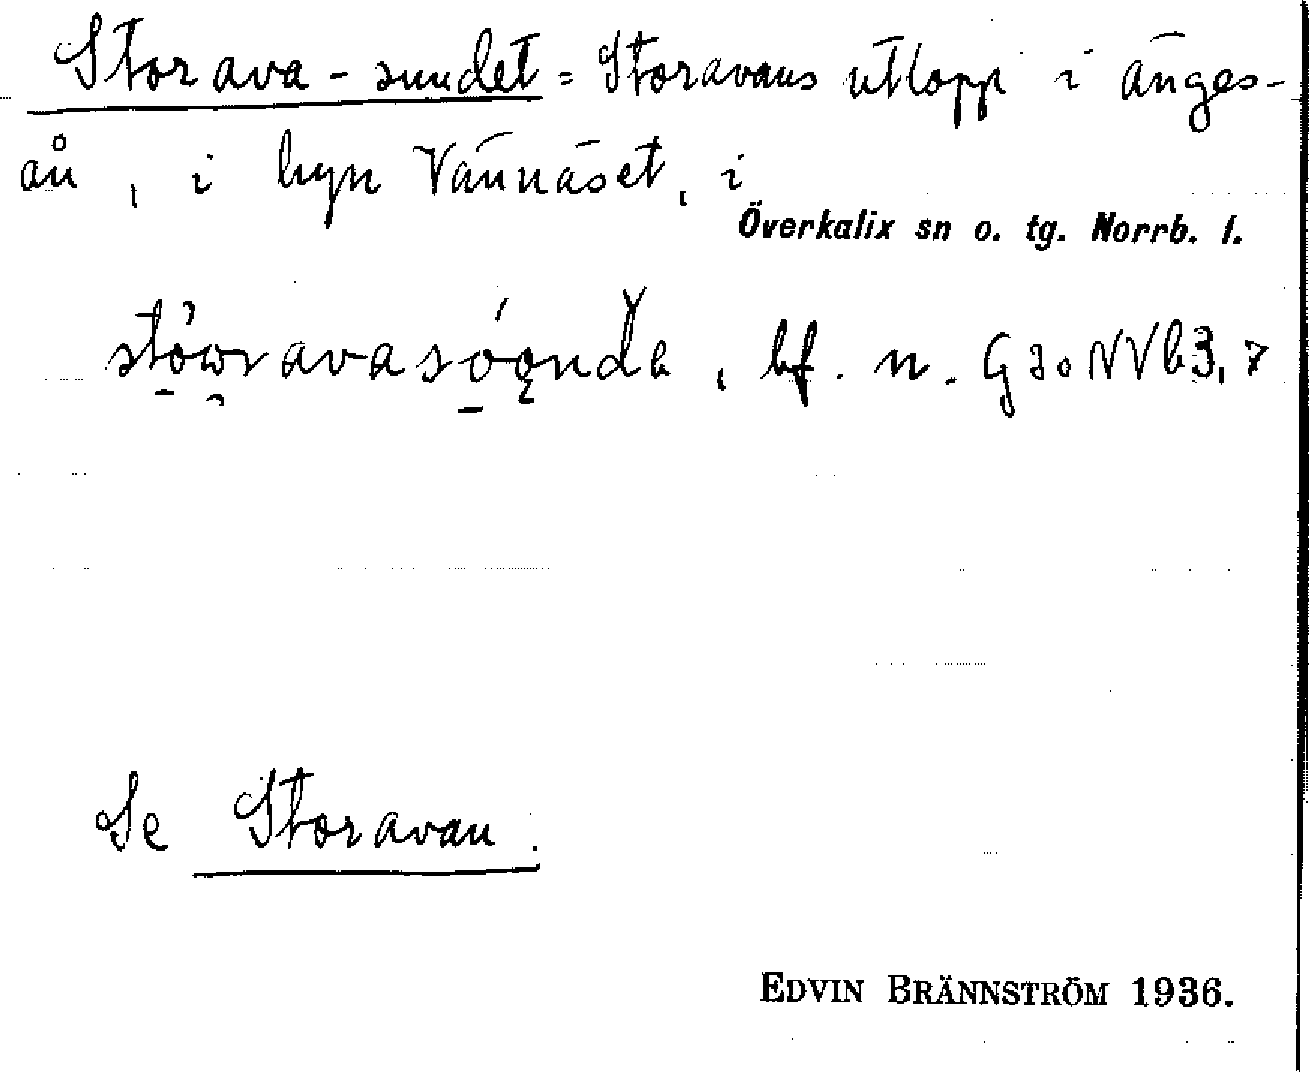 Storava-sundet = Storavans utlopp i änges-
ån, i byn Vännäset, i
Överkalix sn o. tg. Norrb. l.
bf. n. G30NVb3,7
Se Storavan.
EDVIN BRÄNNSTRÖM 1936.